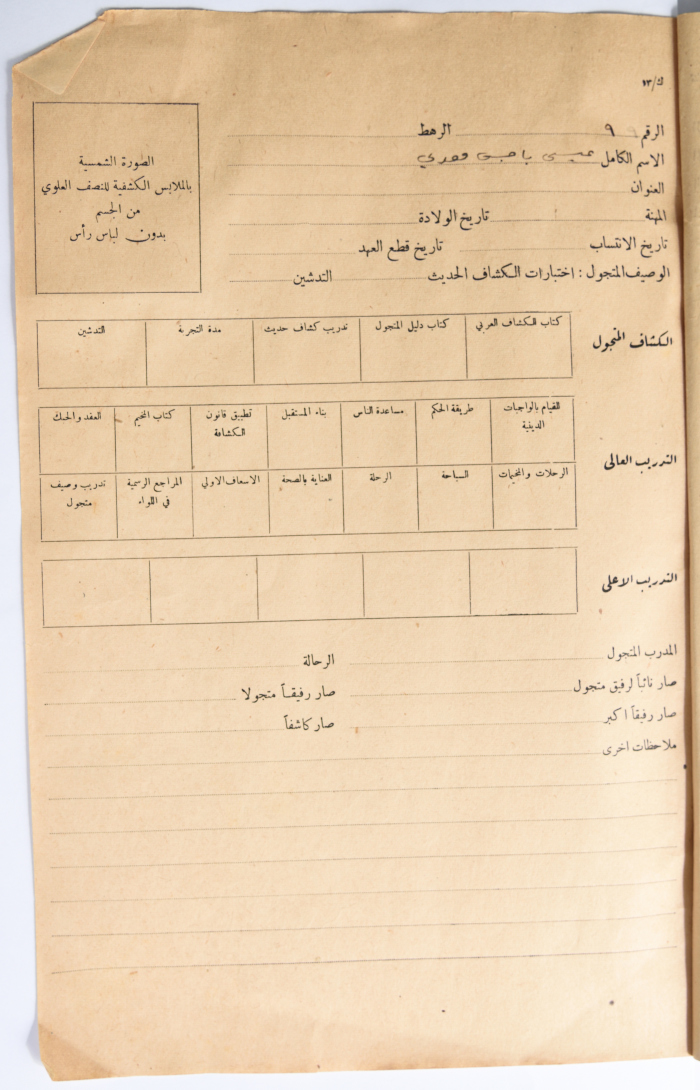 ك/١٣
الرقم ٩ الرهط
الاسم الكامل عيسى
العنوان
المهنة تاريخ الولادة
تاريخ الانتساب تاريخ قطع العهد
الوصيف المتجول : اختبارات الكشاف الحديث التدشين
الصورة الشمسية
بالملابس الكشفية للنصف العلوي
من الجسم
بدون لباس رأس
الكشاف المتجول
كتاب الكشاف العربي كتاب دليل المتجول تدريب كشاف حديث مدة التجربة التدشين
التدريب العالي
القيام بالواجبات الدينية طريقة الحكم مساعدة الناس بناء المستقبل تطبيق قانون الكشافة كتاب المخيم العقد والحبك
الرحلات والمخيمات السباحة الرحلة العناية بالصحة الاسعاف الاولي المراجع الرسمية في اللواء تدريب وصيف متجول
التدريب الاعلى
المدرب المتجول الرحالة
صار نائباً لرفيق متجول صار رفيقاً متجولا
صار رفيقاً اكبر صار كاشفاً
ملاحظات اخرى